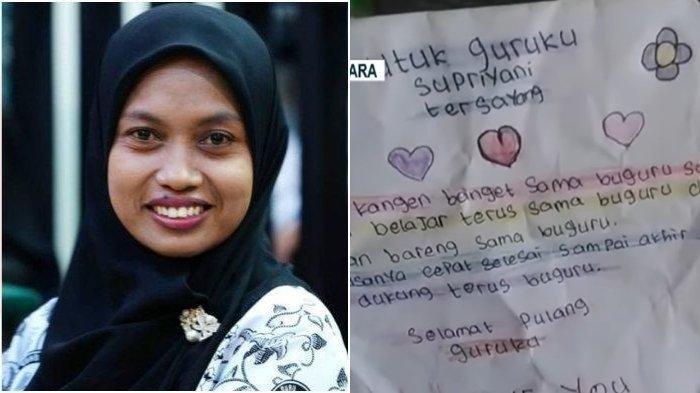 ARA
ntuk guruku
supriyani
tersayang
kangen banget sama buguru
belajar terus sama buguru
bareng sama buguru.
cepat selesai sampai akhir
dukung terus buguru.
Selamat pulang
guruku
You